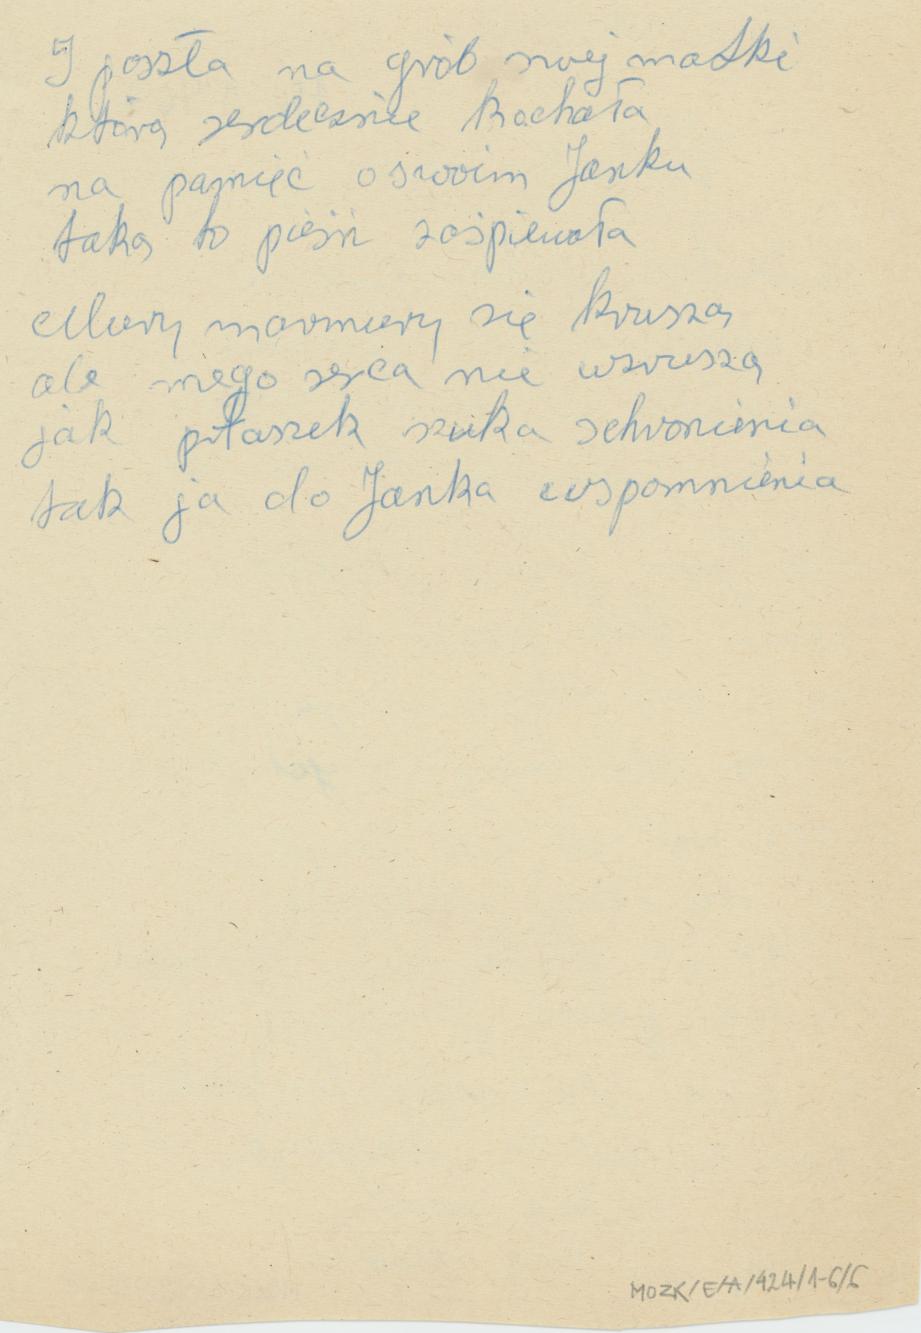 I poszła na grób swej matki
którą serdecznie kochała
na pamięć o swoim Janku
taką to pieśń zaśpiewała
Mury marmury się kruszą
ale mego serca nie wzruszą
jak ptaszek szuka schronienia
tak ja do Janka wspomnienia
MOZK/E/A/424/1-6/6